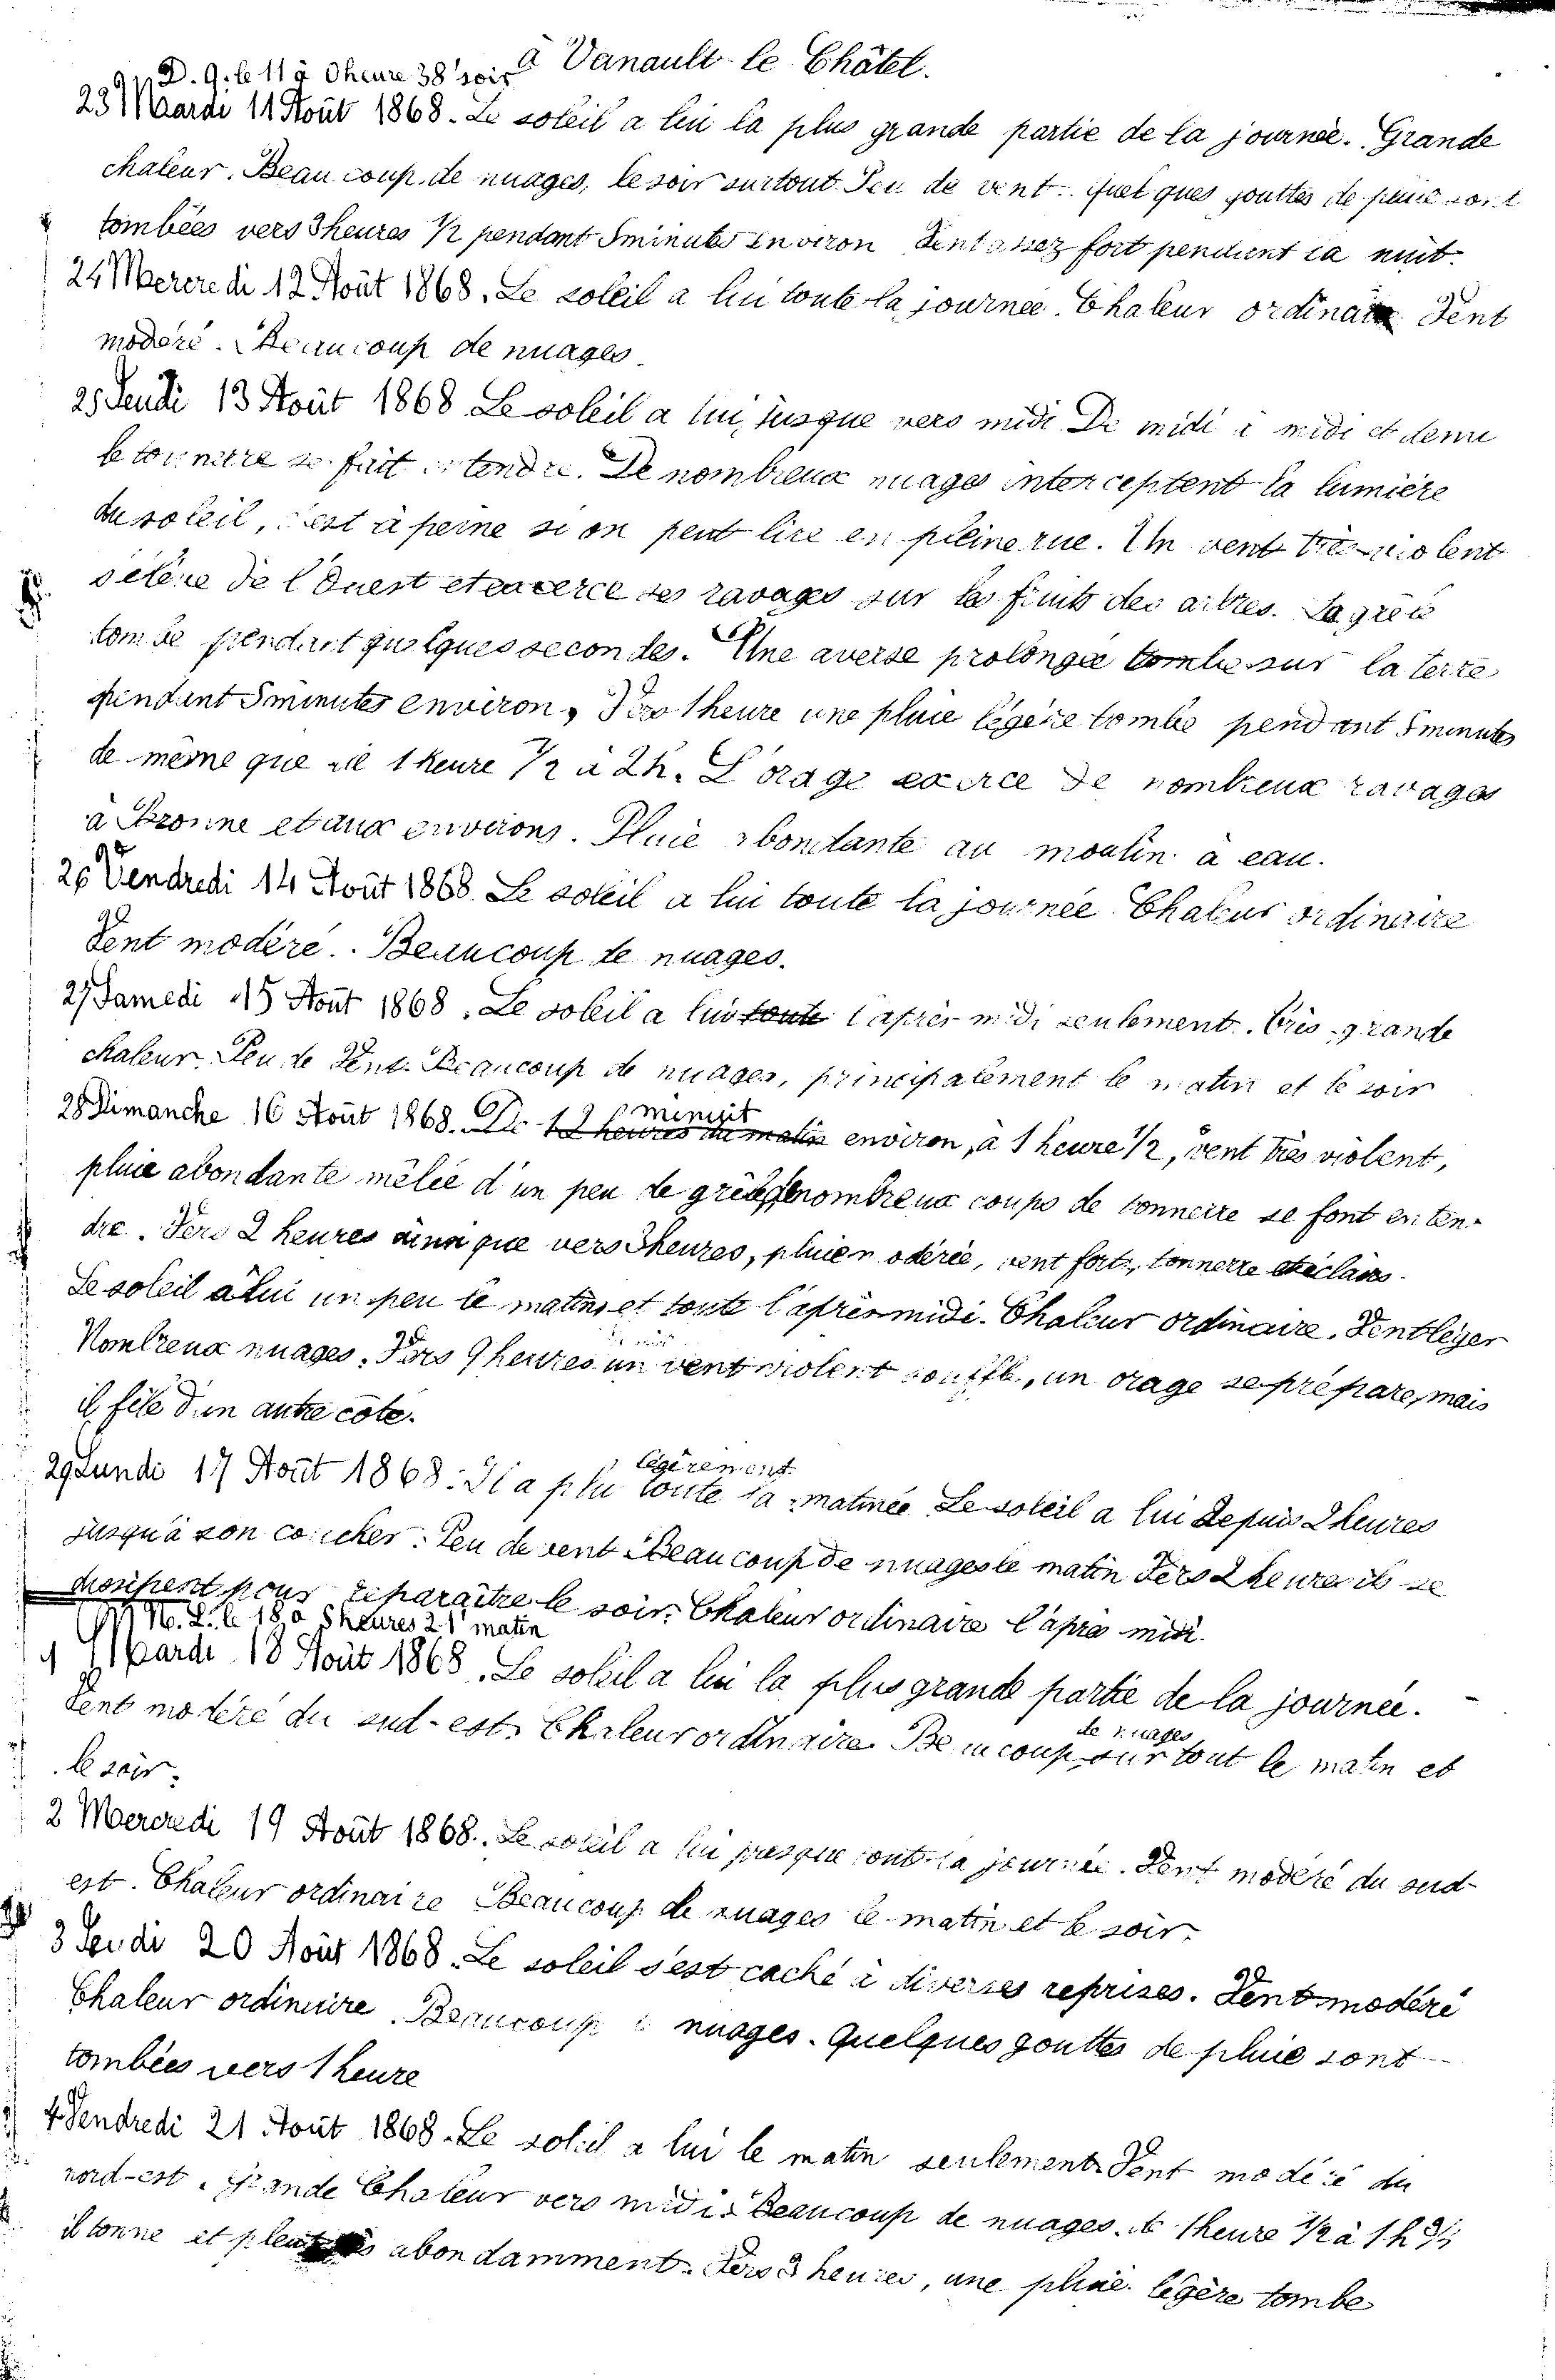 à Vanault-le-Châtel.
D. Q. le 11 à 0 heure 38' soir
23 Mardi 11 Août 1868. Le soleil a lui la plus grande partie de la journée. Grande
chaleur. Beaucoup de nuages, le soir surtout. Peu de vent. quelques gouttes de pluie sont
tombées vers 3 heures 1/2 pendant 5 minutes environ Vent assez fort pendant la nuit.
24 Mercredi 12 Août 1868. Le soleil a lui toute la journée. Chaleur ordinaire Vent
modéré. Beaucoup de nuages.
25 Jeudi 13 Août 1868 Le soleil a lui jusque vers midi. De midi à midi et demi
le tonnerre se fait entendre. De nombreux nuages interceptent la lumière
du soleil, c'est à peine si on peut lire en pleine rue. Un vent très-violent
s'élève de l'Ouest et exerce ses ravages sur les fruits des arbres. La grêle
tombe pendant quelques secondes. Une averse prolongée tombe sur la terre
pendant 5 minutes environ, Vers 1 heure une pluie légère tombe pendant 5 minutes
de même que de 1 heure 1/2 à 2h. L'orage exerce de nombreux ravages
à Bronne et aux environs. Pluie abondante au moulin à eau.
26 Vendredi 14 Août 1868. Le soleil a lui toute la journée. Chaleur ordinaire
Vent modéré. Beaucoup de nuages.
27 Samedi 15 Août 1868. Le soleil a lui toute l'après-midi seulement. Très-grande
chaleur. Peu de Vent. Beaucoup de nuages, principalement le matin et le soir
28 Dimanche 16 Août 1868. De 12 heures du matin minuit environ, à 1 heure 1/2, vent très violent,
pluie abondante mêlée d'un peu de grêle, de nombreux coups de tonnerre se font enten-
dre. Vers 2 heures ainsi que vers 3 heures, pluie modérée, vent fort, tonnerre et éclairs.
Le soleil a lui un peu le matin, et toute l'après-midi. Chaleur ordinaire. Vent léger
Nombreux nuages. Vers 9 heures un vent violent souffle, un orage se prépare, mais
il file d'un autre côté.
29 Lundi 17 Août 1868. Il a plu légèrement toute la matinée. Le soleil a lui depuis 2 heures
jusqu'à son coucher. Peu de vent Beaucoup de nuages le matin Vers 2 heures ils se
dissipent pour reparaître le soir. Chaleur ordinaire l'après midi.
N. L. le 18 à 5 heures 21' matin
1 Mardi 18 Août 1868. Le soleil a lui la plus grande partie de la journée.
Vent modéré du sud-est. Chaleur ordinaire. Beaucoup de nuages surtout le matin et
le soir.
2 Mercredi 19 Août 1868. Le soleil a lui presque toute la journée. Vent modéré du sud-
est. Chaleur ordinaire Beaucoup de nuages le matin et le soir.
3 Jeudi 20 Août 1868. Le soleil s'est caché à diverses reprises. Vent modéré
Chaleur ordinaire. Beaucoup de nuages. Quelques gouttes de pluie sont
tombées vers 1 heure
4 Vendredi 21 Août 1868. Le soleil a lui le matin seulement. Vent modéré du
nord-est. Grande Chaleur vers midi. Beaucoup de nuages. de 1 heure 1/2 à 1 h 3/4
il tonne et pleut abondamment. Vers 3 heures, une pluie légère tombe